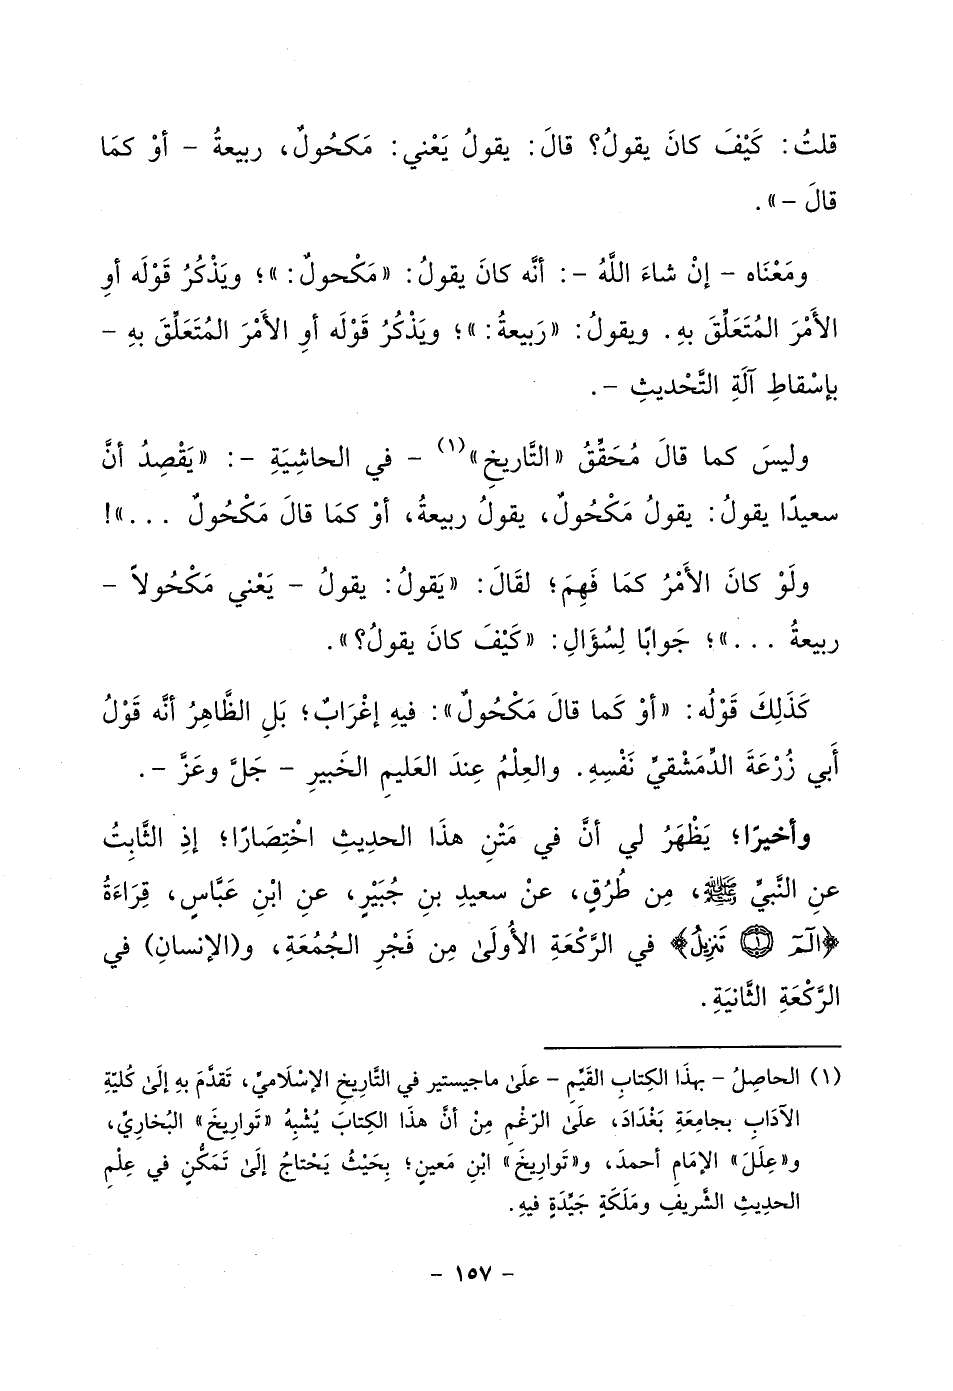 قلتُ: كَيْفَ كانَ يقولُ؟ قالَ: يقولُ يَعْني: مَكحُولٌ، ربيعةُ - أوْ كمَا
قالَ -».
ومَعْنَاه - إنْ شاءَ اللَّهُ -: أنَّه كانَ يقولُ: «مَكْحولٌ:»؛ ويَذْكُرُ قَوْلَه أوِ
الأَمْرَ المُتَعَلِّقَ بهِ. ويقولُ: «رَبيعةُ:»؛ ويَذْكُرُ قَوْلَه أوِ الأَمْرَ المُتَعَلِّقَ بهِ -
بإسْقاطِ آلَةِ التَّحْديثِ -.
وليسَ كما قالَ مُحَقِّقُ «التَّاريخِ»(١) - في الحاشِيَةِ -: «يَقْصِدُ أنَّ
سعيدًا يقولُ: يقولُ مَكْحُولٌ، يقولُ ربيعةُ، أوْ كمَا قالَ مَكْحُولٌ ...»!
ولَوْ كانَ الأَمْرُ كمَا فَهِمَ؛ لقَالَ: «يَقولُ: يقولُ - يَعْني مَكْحُولاً -
ربيعةُ ...»؛ جَوابًا لِسُؤَالِ: «كَيْفَ كانَ يقولُ؟».
كَذَلِكَ قَوْلُه: «أوْ كَما قالَ مَكْحُولٌ»: فيهِ إغْرابٌ؛ بَلِ الظَّاهِرُ أنَّه قَوْلُ
أَبي زُرْعَةَ الدِّمَشْقيِّ نَفْسِهِ. والعِلْمُ عِندَ العَليمِ الخَبيرِ - جَلَّ وعَزَّ -.
وأخيرًا؛ يَظْهَرُ لي أنَّ في مَتْنِ هذَا الحديثِ اخْتِصَارًا؛ إذِ الثَّابِتُ
عنِ النَّبيِّ ﷺ، مِن طُرُقٍ، عنْ سعيدِ بنِ جُبَيْرٍ، عنِ ابْنِ عَبَّاسٍ، قِرَاءَةُ
﴿الٓمٓ ١ تَنزِيلُ﴾ في الرَّكْعَةِ الأُولَىٰ مِن فَجْرِ الجُمُعَةِ، و(الإنسانِ) في
الرَّكْعَةِ الثَّانيَةِ.
(١) الحاصِلُ - بهذَا الكِتابِ القَيِّمِ - علَىٰ ماجيستير في التَّارِيخِ الإسْلَاميِّ، تَقدَّمَ بهِ إلَىٰ كُليَّةِ
الآدَابِ بجامِعَةِ بَغْدَادَ، علَىٰ الرّغْمِ مِنْ أنَّ هذَا الكِتابَ يُشْبِهُ «تَواريخَ» البُخاريِّ،
و«عِلَلَ» الإمَامِ أحمدَ، و«تَواريخَ» ابْنِ مَعينٍ؛ بِحَيْثُ يَحْتاجُ إلَىٰ تَمَكُّنٍ في عِلْمِ
الحديثِ الشَّريفِ ومَلَكَةٍ جَيِّدَةٍ فيهِ.
- ١٥٧ -